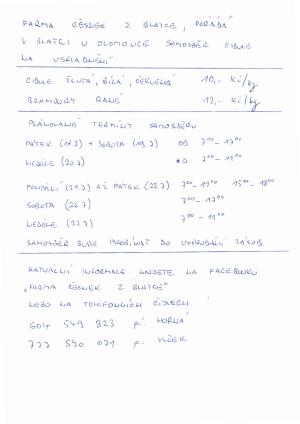 FARMA ČESNEK Z BLATCE, POŘÁDÁ
V BLATCI U OLOMOUCE SAMOSBĚR CIBULE
NA USKLADNĚNÍ
CIBULE ŽLUTÁ, BÍLÁ, ČERVENÁ 10,- Kč/kg
BRAMBORY RANÉ 12,- Kč/kg
PLÁNOVANÉ TERMÍNY SAMOSBĚRU
PÁTEK (18.7) + SOBOTA (19.7) OD 7⁰⁰-17⁰⁰
NEDĚLE (20.7) OD 7⁰⁰-11⁰⁰
PONDĚLÍ (21.7) AŽ PÁTEK (25.7) 7⁰⁰-11⁰⁰ 15⁰⁰-18⁰⁰
SOBOTA (26.7) 7⁰⁰-17⁰⁰
NEDĚLE (27.7) 7⁰⁰-11⁰⁰
SAMOSBĚR BUDE PROBÍHAT DO VYPRODÁNÍ ZÁSOB
AKTUÁLNÍ INFORMACE NAJDETE NA FACEBOOKU
„FARMA ČESNEK Z BLATCE"
NEBO NA TELEFONNÍCH ČÍSLECH
604 549 823 pí. HORNÁ
777 550 071 p. VLČEK